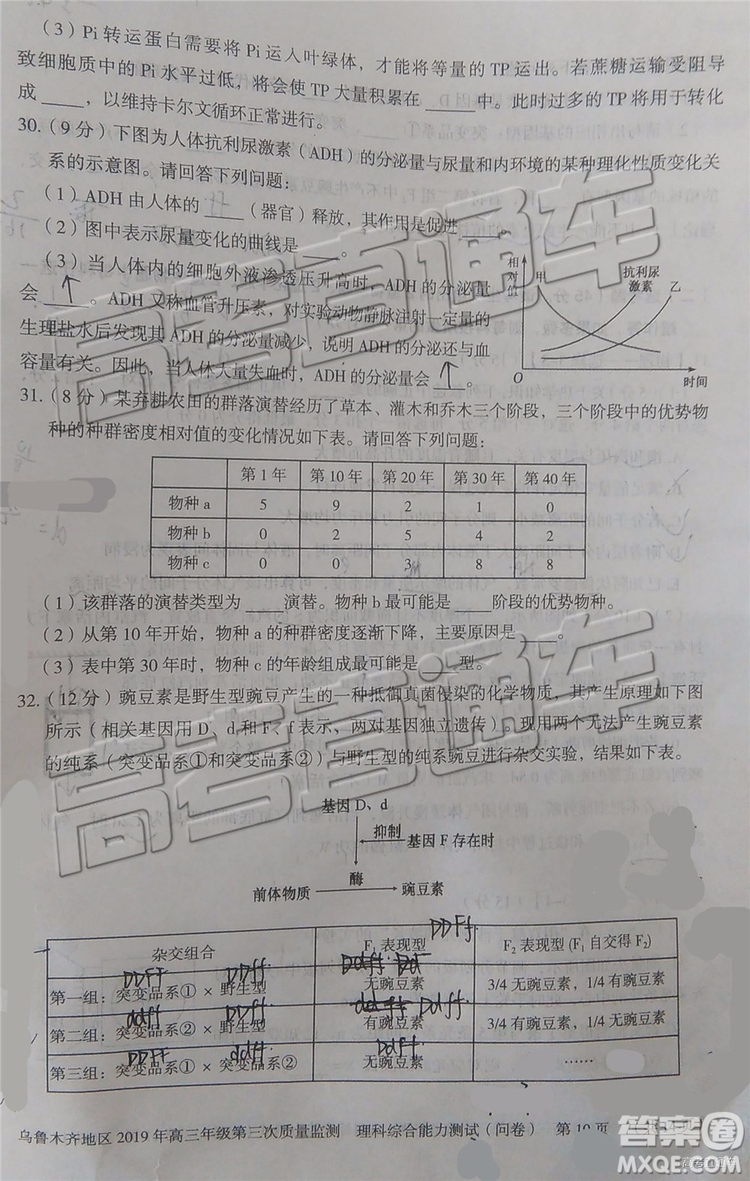 (3) Pi 转运蛋白需要将 Pi 运入叶绿体，才能将等量的 TP 运出。若蔗糖运输受阻导
致细胞质中的 Pi 水平过低，将会使 TP 大量积累在____中。此时过多的 TP 将用于转化
成____，以维持卡尔文循环正常进行。
30.(9 分)下图为人体抗利尿激素(ADH)的分泌量与尿量和内环境的某种理化性质变化关
系的示意图。请回答下列问题：
(1) ADH 由人体的____(器官)释放，其作用是促进____。
(2) 图中表示尿量变化的曲线是____。
(3) 当人体内的细胞外液渗透压升高时，ADH 的分泌量
会 ↑ 。ADH 又称血管升压素，对实验动物静脉注射一定量的
生理盐水后发现其 ADH 分泌量减少，说明 ADH 的分泌还与血
容量有关。因此，当人体大量失血时，ADH 的分泌量会 ↑ 。
相对值
甲
抗利尿激素
乙
O
时间
31.(8 分)某弃耕农田的群落演替经历了草本、灌木和乔木三个阶段，三个阶段中的优势物
种的种群密度相对值的变化情况如下表。请回答下列问题：
第 1 年 第 10 年 第 20 年 第 30 年 第 40 年
物种 a 5 9 2 1 0
物种 b 0 2 5 4 4
物种 c 0 0 3 8 8
(1) 该群落的演替类型为____演替。物种 b 最可能是____阶段的优势物种。
(2) 从第 10 年开始，物种 a 的种群密度逐渐下降，主要原因是____。
(3) 表中第 30 年时，物种 c 的年龄组成最可能是____型。
32.(12 分)豌豆素是野生型豌豆产生的一种抵御真菌侵染的化学物质，其产生原理如下图
所示(相关基因用 D、d 和 F、f 表示，两对基因独立遗传)。现用两个无法产生豌豆素
的纯系(突变品系①和突变品系②)与野生型的纯系豌豆进行杂交实验，结果如下表。
基因 D、d
抑制
基因 F 存在时
前体物质 酶 豌豆素
DDFf
杂交组合 F₁ 表现型 F₂ 表现型 (F₁ 自交得 F₂)
DDFF DDff
第一组：突变品系① × 野生型 无豌豆素 3/4 无豌豆素，1/4 有豌豆素
ddff DDff Ddff
第二组：突变品系② × 野生型 有豌豆素 3/4 有豌豆素，1/4 无豌豆素
DDFF ddff DdFf
第三组：突变品系① × 突变品系② 无豌豆素 ……
乌鲁木齐地区 2019 年高三年级第三次质量监测 理科综合能力测试(问卷) 第 10 页
高考直通车
高考直通车
答案圈
MXQE.COM